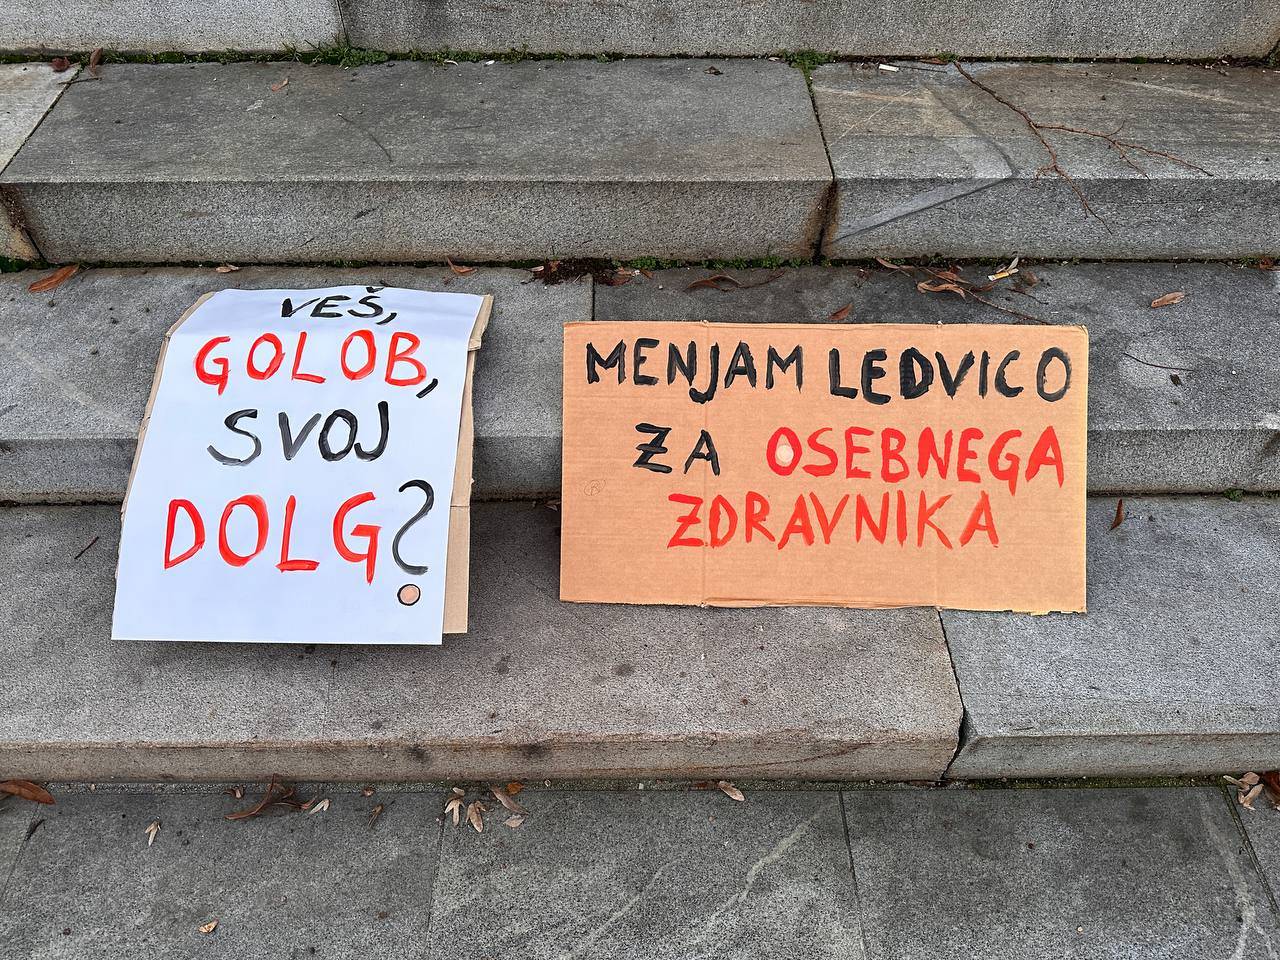 VEŠ,
GOLOB,
SVOJ
DOLG?
MENJAM LEDVICO
ZA OSEBNEGA
ZDRAVNIKA